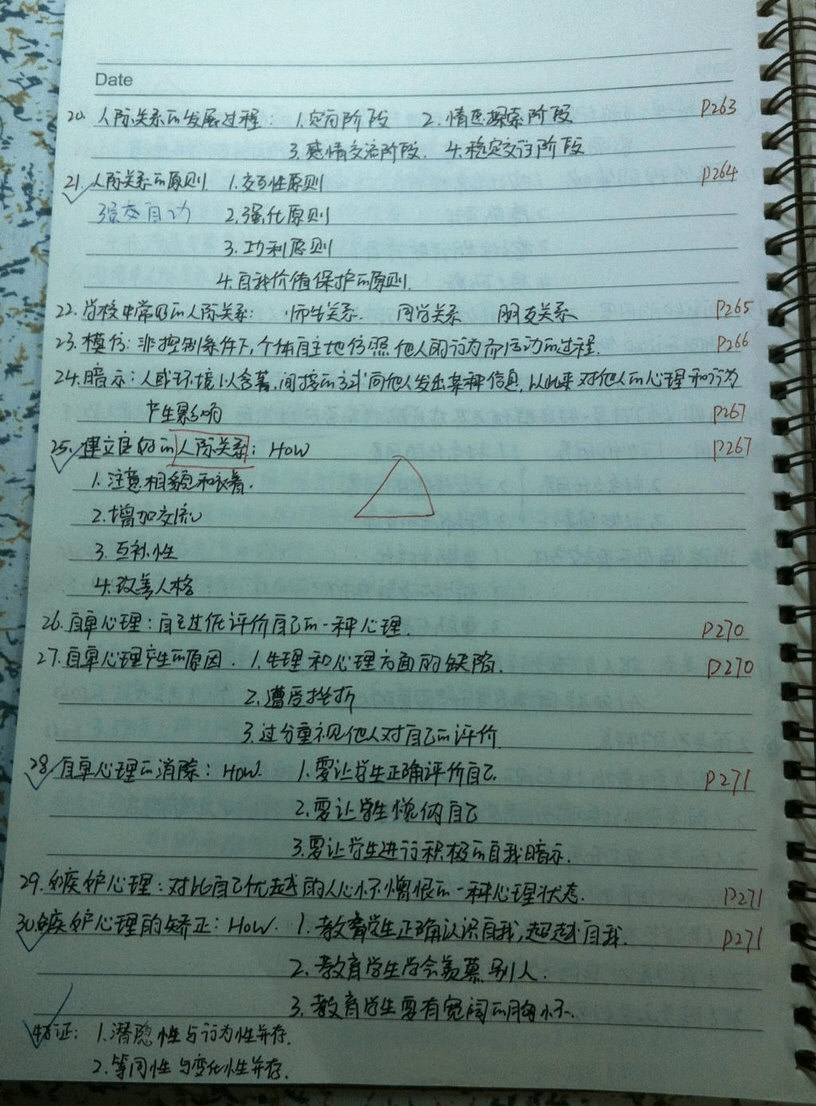 Date
20. 人际关系的发展过程: 1.定向阶段 2.情感探索阶段 P263
3.感情交流阶段. 4.稳定交往阶段
21. 人际关系的原则 1.交互性原则 P264
强交自功 2.强化原则
3.功利原则
4.自我价值保护的原则.
22. 学校中常见的人际关系: 师生关系. 同学关系 朋友关系 P265
23. 模仿: 非控制条件下,个体自主地仿照他人的行为而活动的过程. P266
24. 暗示: 人或环境以含蓄,间接的方式向他人发出某种信息,以此来对他人的心理和行为
产生影响 P267
25. 建立良好的人际关系: How P267
1.注意相貌和衣着.
2.增加交流
3.互补性
4.改善人格
26. 自卑心理: 自己过低评价自己的一种心理. P270
27. 自卑心理产生的原因. 1.生理和心理方面的缺陷. P270
2.遭受挫折
3.过分重视他人对自己的评价
28. 自卑心理的消除: How. 1.要让学生正确评价自己. P271
2.要让学生悦纳自己
3.要让学生进行积极的自我暗示.
29. 嫉妒心理: 对比自己优越的人心怀憎恨的一种心理状态. P271
30. 嫉妒心理的矫正: How. 1.教育学生正确认识自我,超越自我. P271
2.教育学生学会羡慕别人.
3.教育学生要有宽阔的胸怀.
特征: 1.潜隐性与行为性并存.
2.等同性与变化性并存.